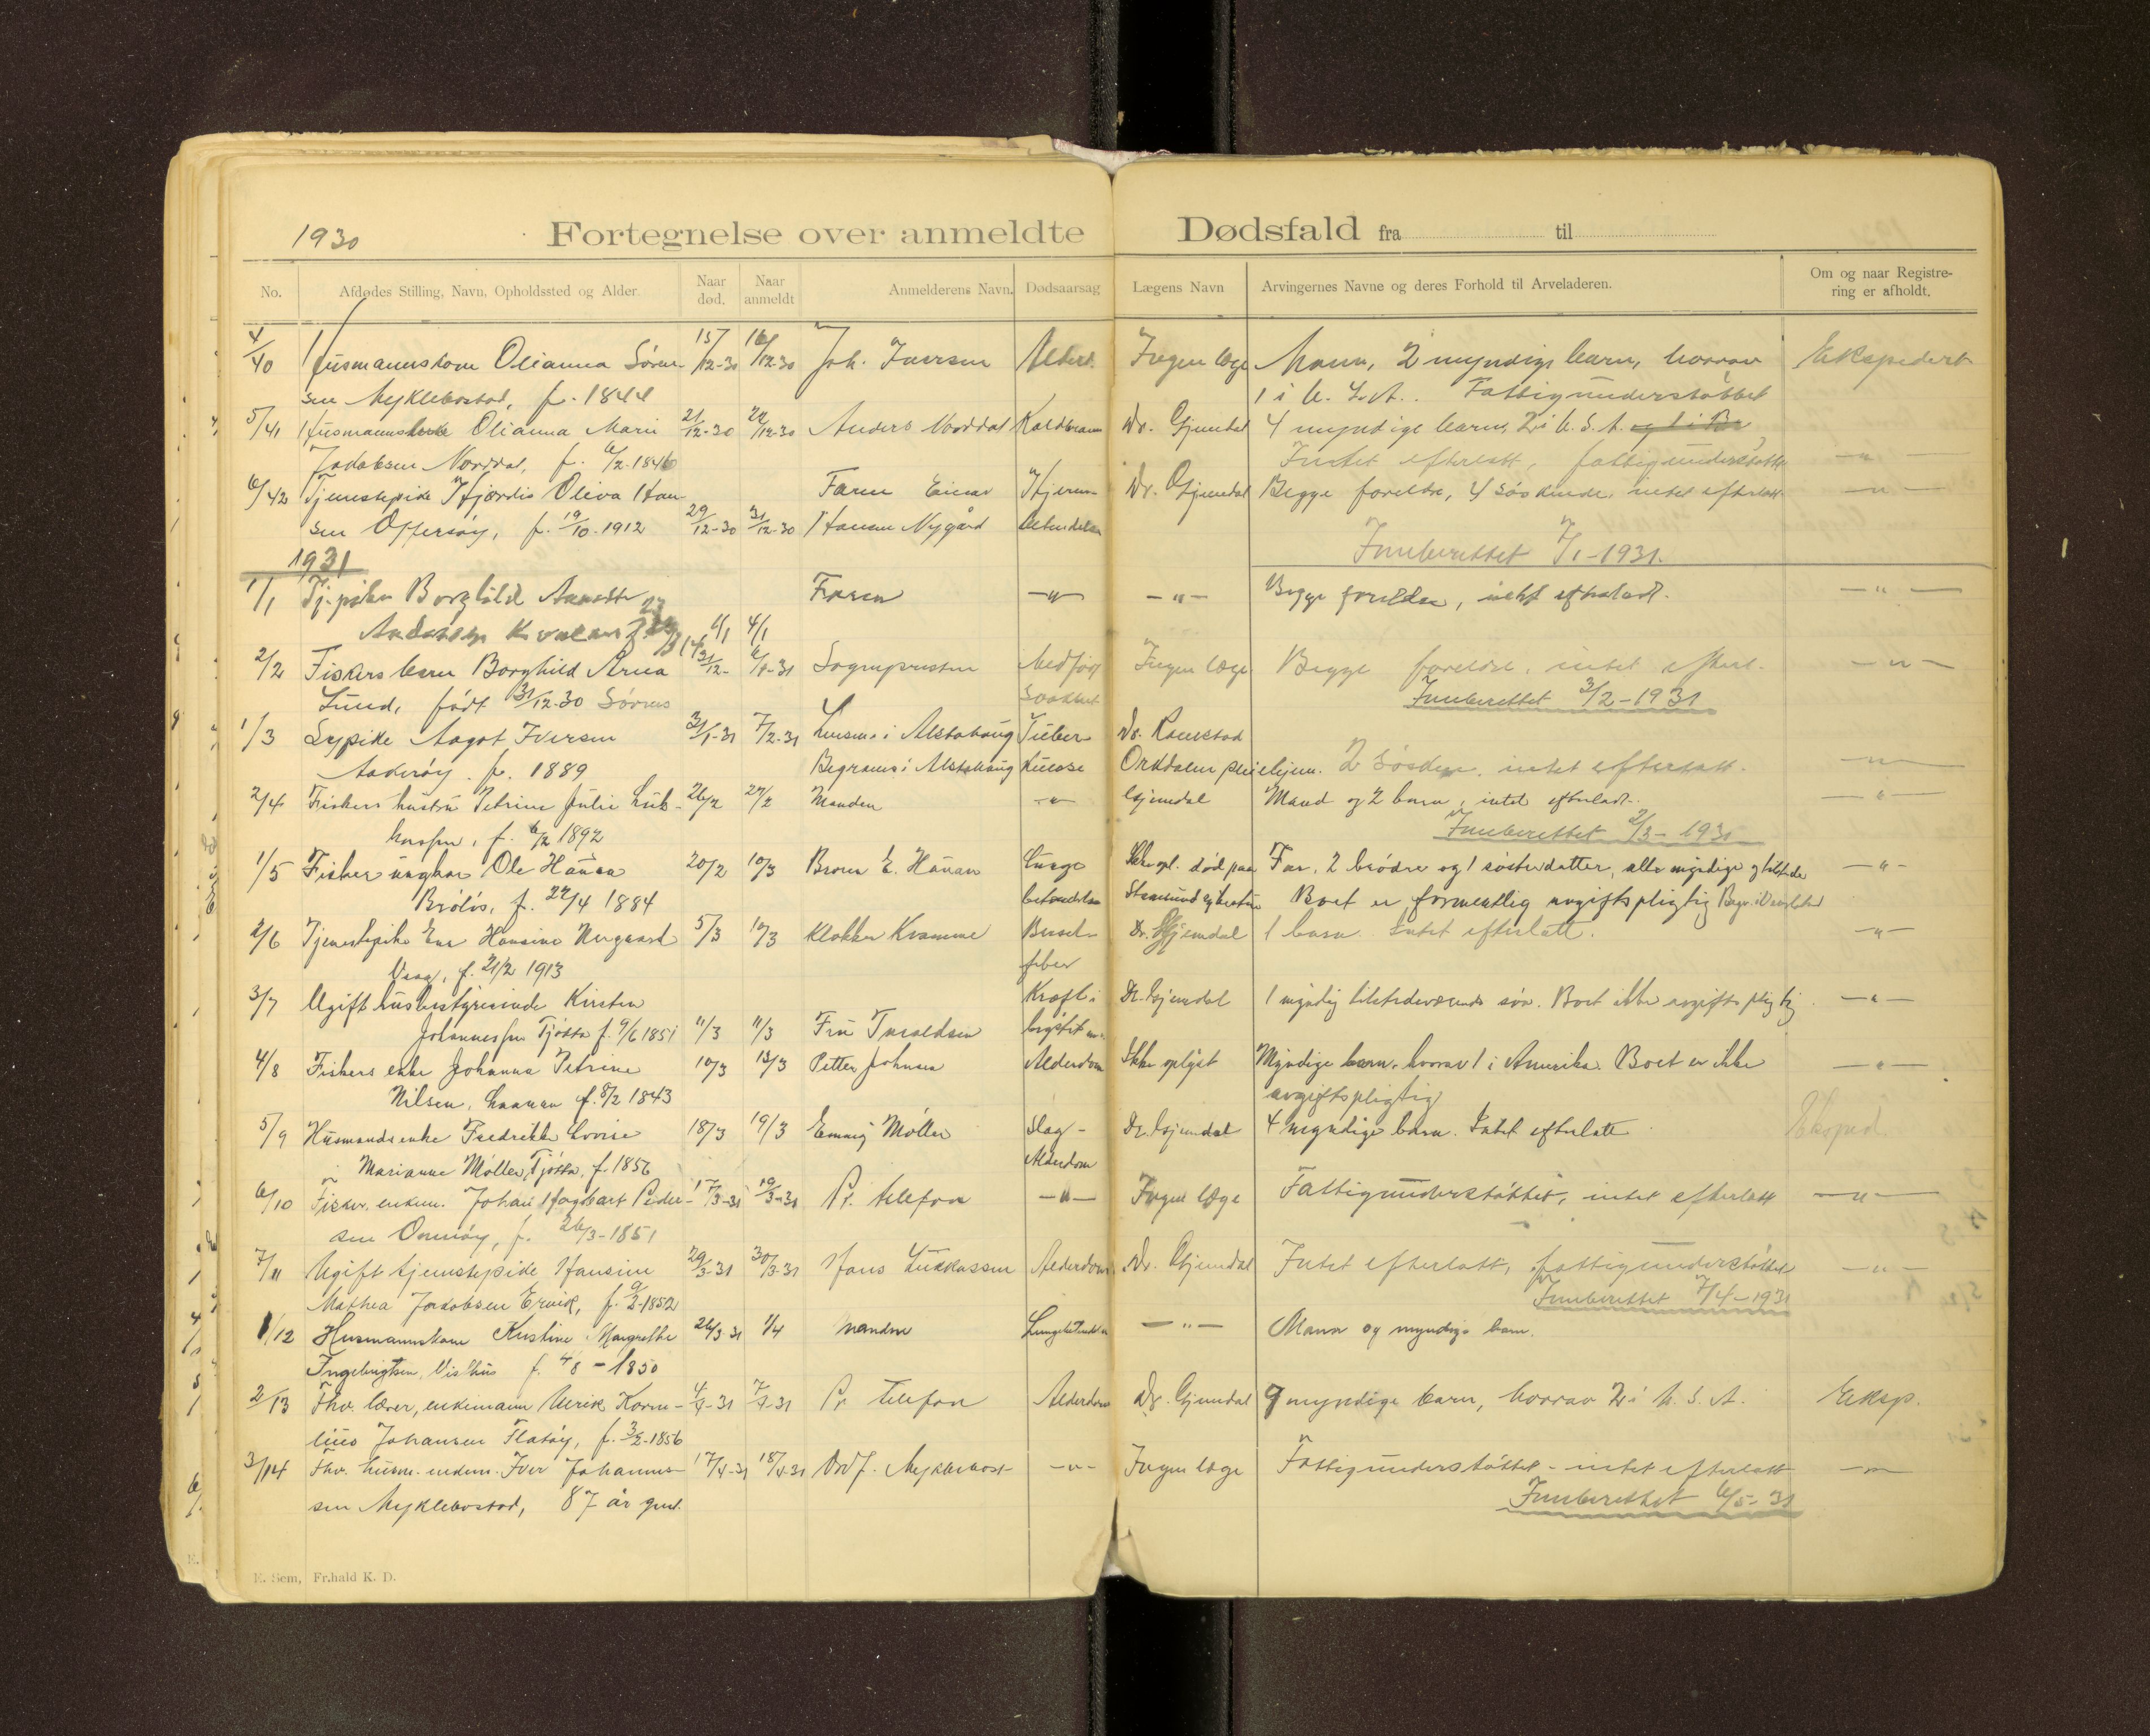 1930
Fortegnelse over anmeldte Dødsfald fra til
No. Afdødes Stilling, Navn, Opholdssted og Alder. Naar død. Naar anmeldt Anmelderens Navn. Dødsaarsag Lægens Navn Arvingernes Navne og deres Forhold til Arveladeren. Om og naar Registrering er afholdt.
4/40 Husmannskone Olianna Søren- 15/12-30 16/12-30 Joh. Iversen Alderd. Ingen læge Mann, 2 myndige barn, hvorav Ekspedert
sen Myklebostad, f. 1844 1 i U.S.A. Fattigunderstøttet
5/41 Husmanns Olianna Marie 21/12-30 22/12-30 Anders Norddal Koldbrann Dr. Gjemdal 4 myndige barn, 2 i U.S.A.
Jakobsen Norddal, f. 6/2-1846 Intet efterlatt, fattigunderstøttet -"-
6/42 Tjenestepike Hjørdis Oliva Han- Faren Einar Hjerne- Dr. Gjemdal Begge foreldre, 4 søskende, intet efterlatt. -"-
sen Offersøy, f. 19/10-1912 29/12-30 31/12-30 Hansen Nygård betendelse
Innberettet 7/1-1931.
1931
1/1 Tj.piken Borghild Annette Faren -"- -"- Begge foreldre, intet efterladt. -"-
1/1 4/1
2/2 Fiskers barn Borghild Arna 31/12- 6/1-31 Sognepresten Medfødt Ingen læge Begge foreldre, intet efterl. -"-
Lund, født 31/12-30 Sørnes svakhet Innberettet 3/2-1931
1/3 Sypike Aagot Iversen 31/1-31 7/2-31 Lensm. i Alstahaug Tuber- Dr. Ramstad
f. 1889 Begraves i Alstahaug kulose Orkdalen pleiehjem. 2 søsken, intet efterlatt. -"-
2/4 Fiskers hustru Petrine Julie Luk- 26/2 27/2 Manden -"- Gjemdal Mand og 2 barn, intet efterladt. -"-
kassen, f. 6/2 1892 Innberettet 2/3-1931
1/5 Fisker ungkar Ole Hauan 20/2 10/3 Broren E. Hauan Lunge Ikke opl. død paa Far, 2 brødre og 1 søsterdatter, alle myndige og tilstede -"-
Brøløs, f. 22/4 1884 betendelse Boet er formentlig avgiftspligtig
2/6 Tjenestepike Ena Hansine Nergaard 5/3 10/3 Klokker Kramme Barsel- Dr. Gjemdal 1 barn. Intet efterlatt. -"-
f. 21/2 1913 feber
3/7 Ugift husbestyrerinde Kirsten Kræft i Dr. Gjemdal 1 myndig tilstedeværende søn. Boet ikke avgiftspligtig. -"-
Johannessen Tjøtta f. 9/6 1851 11/3 11/3 Fru
4/8 Fiskers enke Johanna Petrine 10/3 13/3 Petter Johnsen Alderdom Ikke oplyst Myndige barn, hvorav 1 i Amerika. Boet er ikke -"-
Nilsen, f. 8/2 1843 avgiftspligtig
5/9 Husmandsenke Fredrikke Lovise 18/3 19/3 Emmy Møller Slag- Dr. Gjemdal 4 myndige barn. Intet efterlatt. Eksped.
Marianne Møller, Tjøtta, f. 1856 Alderdom
6/10 Fisker, enkem. Johan Hagbart Peder- 17/3-31 19/3-31 Pr. telefon -"- Ingen læge Fattigunderstøttet, intet efterlatt -"-
sen Ormsøy, f. 26/3-1851
7/11 Ugift tjenestepike Hansine 29/3-31 30/3-31 Hans Lukkassen Alderdom Dr. Gjemdal Intet efterlatt, fattigunderstøttet -"-
Mathea Jakobsen Ervik, f. 9/2-1852 Innberettet 7/4-1931
1/12 Husmannskone Kristine Margrethe 26/3 31 1/4 Mannen Lungebetendelse -"- Mann og myndige barn.
Ingebrigtsen, Visthus f. 4/8-1850
2/13 Fhv. lærer, enkemann Ulrik Korne- 4/4-31 7/4-31 Pr. telefon Alderdom Dr. Gjemdal 9 myndige barn, hvorav 2 i U.S.A. Eksp.
lius Johansen Flatøy, f. 3/2-1856
3/14 Fhv. husm. enkem. Iver Johannes- 17/4-31 18/4-31 Ordf. Myklebost- -"- Ingen læge Fattigunderstøttet - intet efterlatt -"-
sen Myklebostad, 87 år gml. Innberettet 6/5-31
E. Sem, Fr.hald K. D.